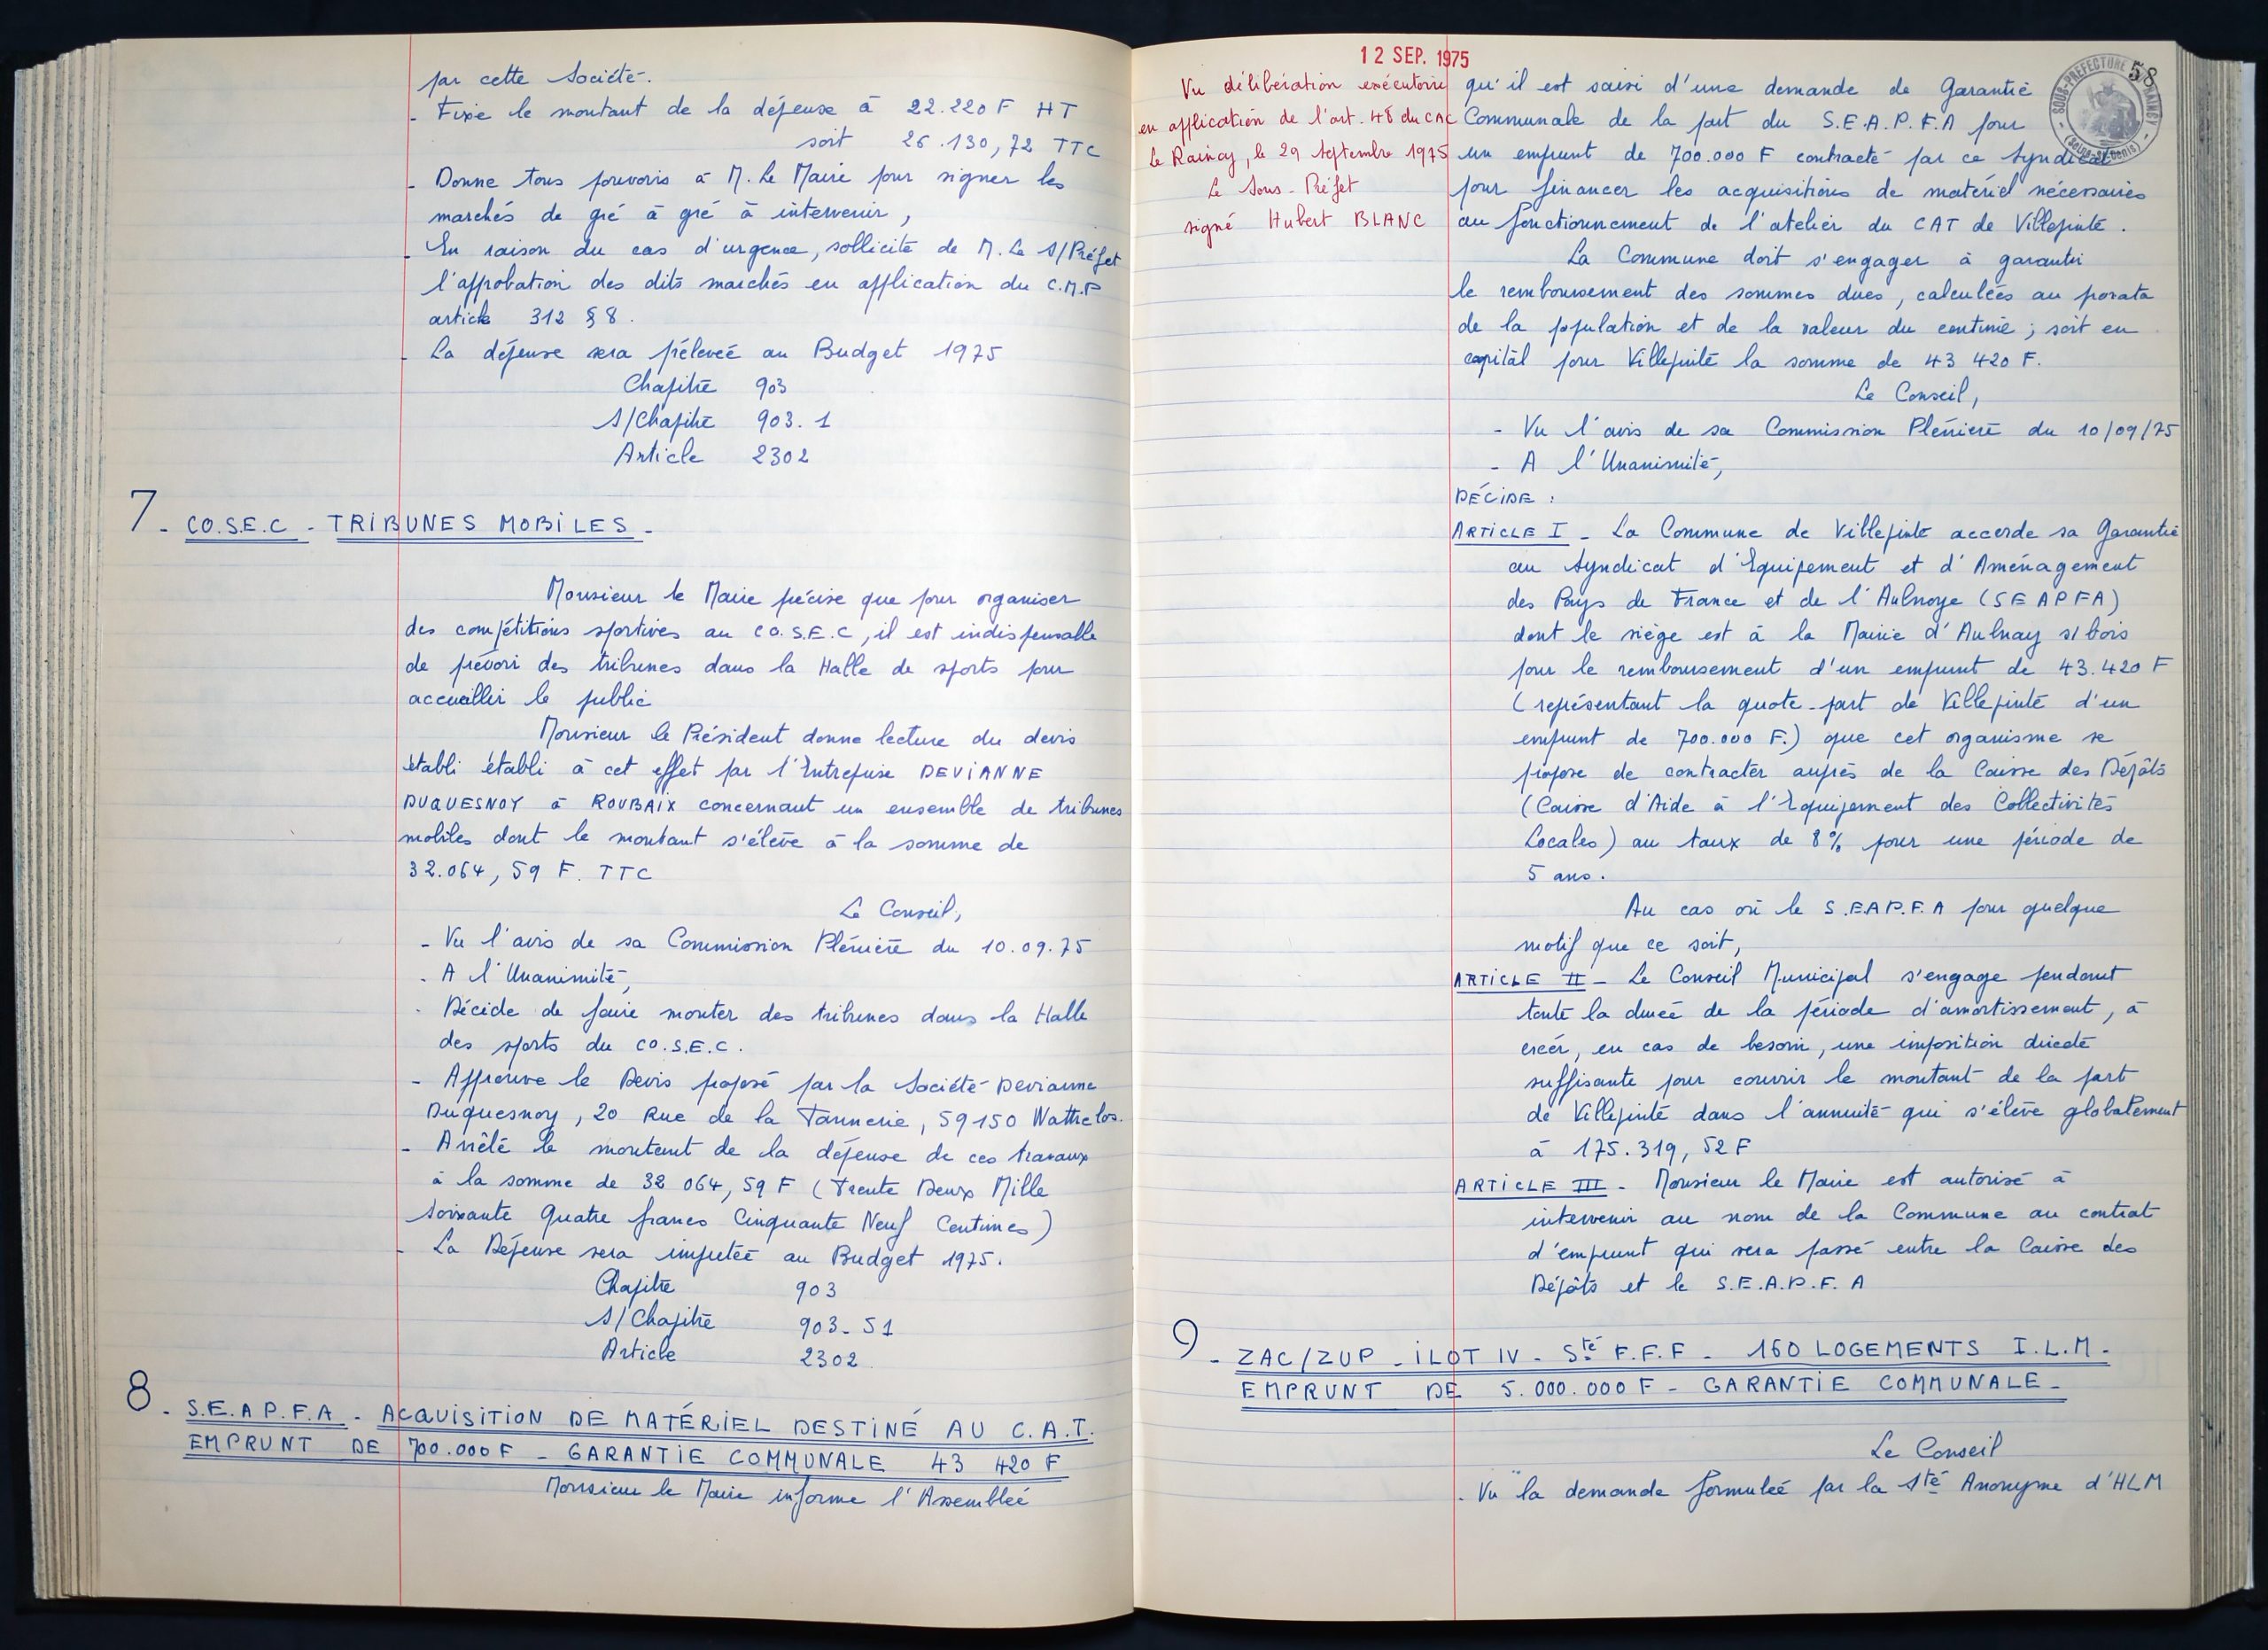 par cette Société.
- Fixe le montant de la dépense à 22.220 F HT
soit 26.130,72 TTC
- Donne tous pouvoirs à M. Le Maire pour signer les
marchés de gré à gré à intervenir,
- En raison du cas d'urgence, sollicite de M. Le S/Préfet
l'approbation des dits marchés en application du C.M.P
article 312 § 8.
- La dépense sera prélevée au Budget 1975
Chapitre 903
S/Chapitre 903.1
Article 2302
7 - CO.S.E.C - TRIBUNES MOBILES -
Monsieur le Maire précise que pour organiser
des compétitions sportives au CO.S.E.C, il est indispensable
de prévoir des tribunes dans la Halle de sports pour
accueillir le public
Monsieur le Président donne lecture du devis
établi établi à cet effet par l'Entreprise DEVIANNE
DUQUESNOY à ROUBAIX concernant un ensemble de tribunes
mobiles dont le montant s'élève à la somme de
32.064,59 F. TTC
Le Conseil,
- Vu l'avis de sa Commission Plénière du 10.09.75
- A l'Unanimité,
- Décide de faire monter des tribunes dans la Halle
des sports du CO.S.E.C.
- Approuve le Devis proposé par la Société Devianne
Duquesnoy, 20 Rue de la Tannerie, 59150 Wattrelos.
- Arrête le montant de la dépense de ces travaux
à la somme de 32 064,59 F (Trente Deux Mille
Soixante Quatre francs Cinquante Neuf Centimes)
- La Dépense sera imputée au Budget 1975.
Chapitre 903
S/Chapitre 903-51
Article 2302
8 - S.E.A P.F.A - ACQUISITION DE MATÉRIEL DESTINÉ AU C.A.T.
EMPRUNT DE 700.000 F - GARANTIE COMMUNALE 43 420 F
Monsieur le Maire informe l'Assemblée
12 SEP. 1975
58
SOUS-PREFECTURE RAINCY
(Seine-St-Denis)
Vu délibération exécutoire
en application de l'art. 48 du CAC
Le Raincy, le 29 Septembre 1975
Le Sous-Préfet
signé Hubert BLANC
qu'il est saisi d'une demande de Garantie
Communale de la part du S.E.A.P.F.A pour
un emprunt de 700.000 F contracté par ce Syndicat
pour financer les acquisitions de matériel nécessaires
au fonctionnement de l'atelier du CAT de Villepinte.
La Commune doit s'engager à garantir
le remboursement des sommes dues, calculées au porata
de la population et de la valeur du centime ; soit en
capital pour Villepinte la somme de 43 420 F.
Le Conseil,
- Vu l'avis de sa Commission Plénière du 10/09/75
- A l'Unanimité,
DÉCIDE :
ARTICLE I - La Commune de Villepinte accorde sa Garantie
au Syndicat d'Equipement et d'Aménagement
des Pays de France et de l'Aulnoye (SEAPFA)
dont le siège est à la Mairie d'Aulnay s/bois
pour le remboursement d'un emprunt de 43.420 F
(représentant la quote-part de Villepinte d'un
emprunt de 700.000 F.) que cet organisme se
propose de contracter auprès de la Caisse des Dépôts
(Caisse d'Aide à l'Equipement des Collectivités
Locales) au taux de 8% pour une période de
5 ans.
Au cas où le S.E.A.P.F.A pour quelque
motif que ce soit,
ARTICLE II - Le Conseil Municipal s'engage pendant
toute la durée de la période d'amortissement, à
créer, en cas de besoin, une imposition directe
suffisante pour couvrir le montant de la part
de Villepinte dans l'annuité qui s'élève globalement
à 175.319,52 F
ARTICLE III - Monsieur le Maire est autorisé à
intervenir au nom de la Commune au contrat
d'emprunt qui sera passé entre la Caisse des
Dépôts et le S.E.A.P.F.A
9 - ZAC/ZUP - ILOT IV - Sté F.F.F - 160 LOGEMENTS I.L.M -
EMPRUNT DE 5.000.000 F - GARANTIE COMMUNALE -
Le Conseil
- Vu la demande formulée par la Sté Anonyme d'HLM